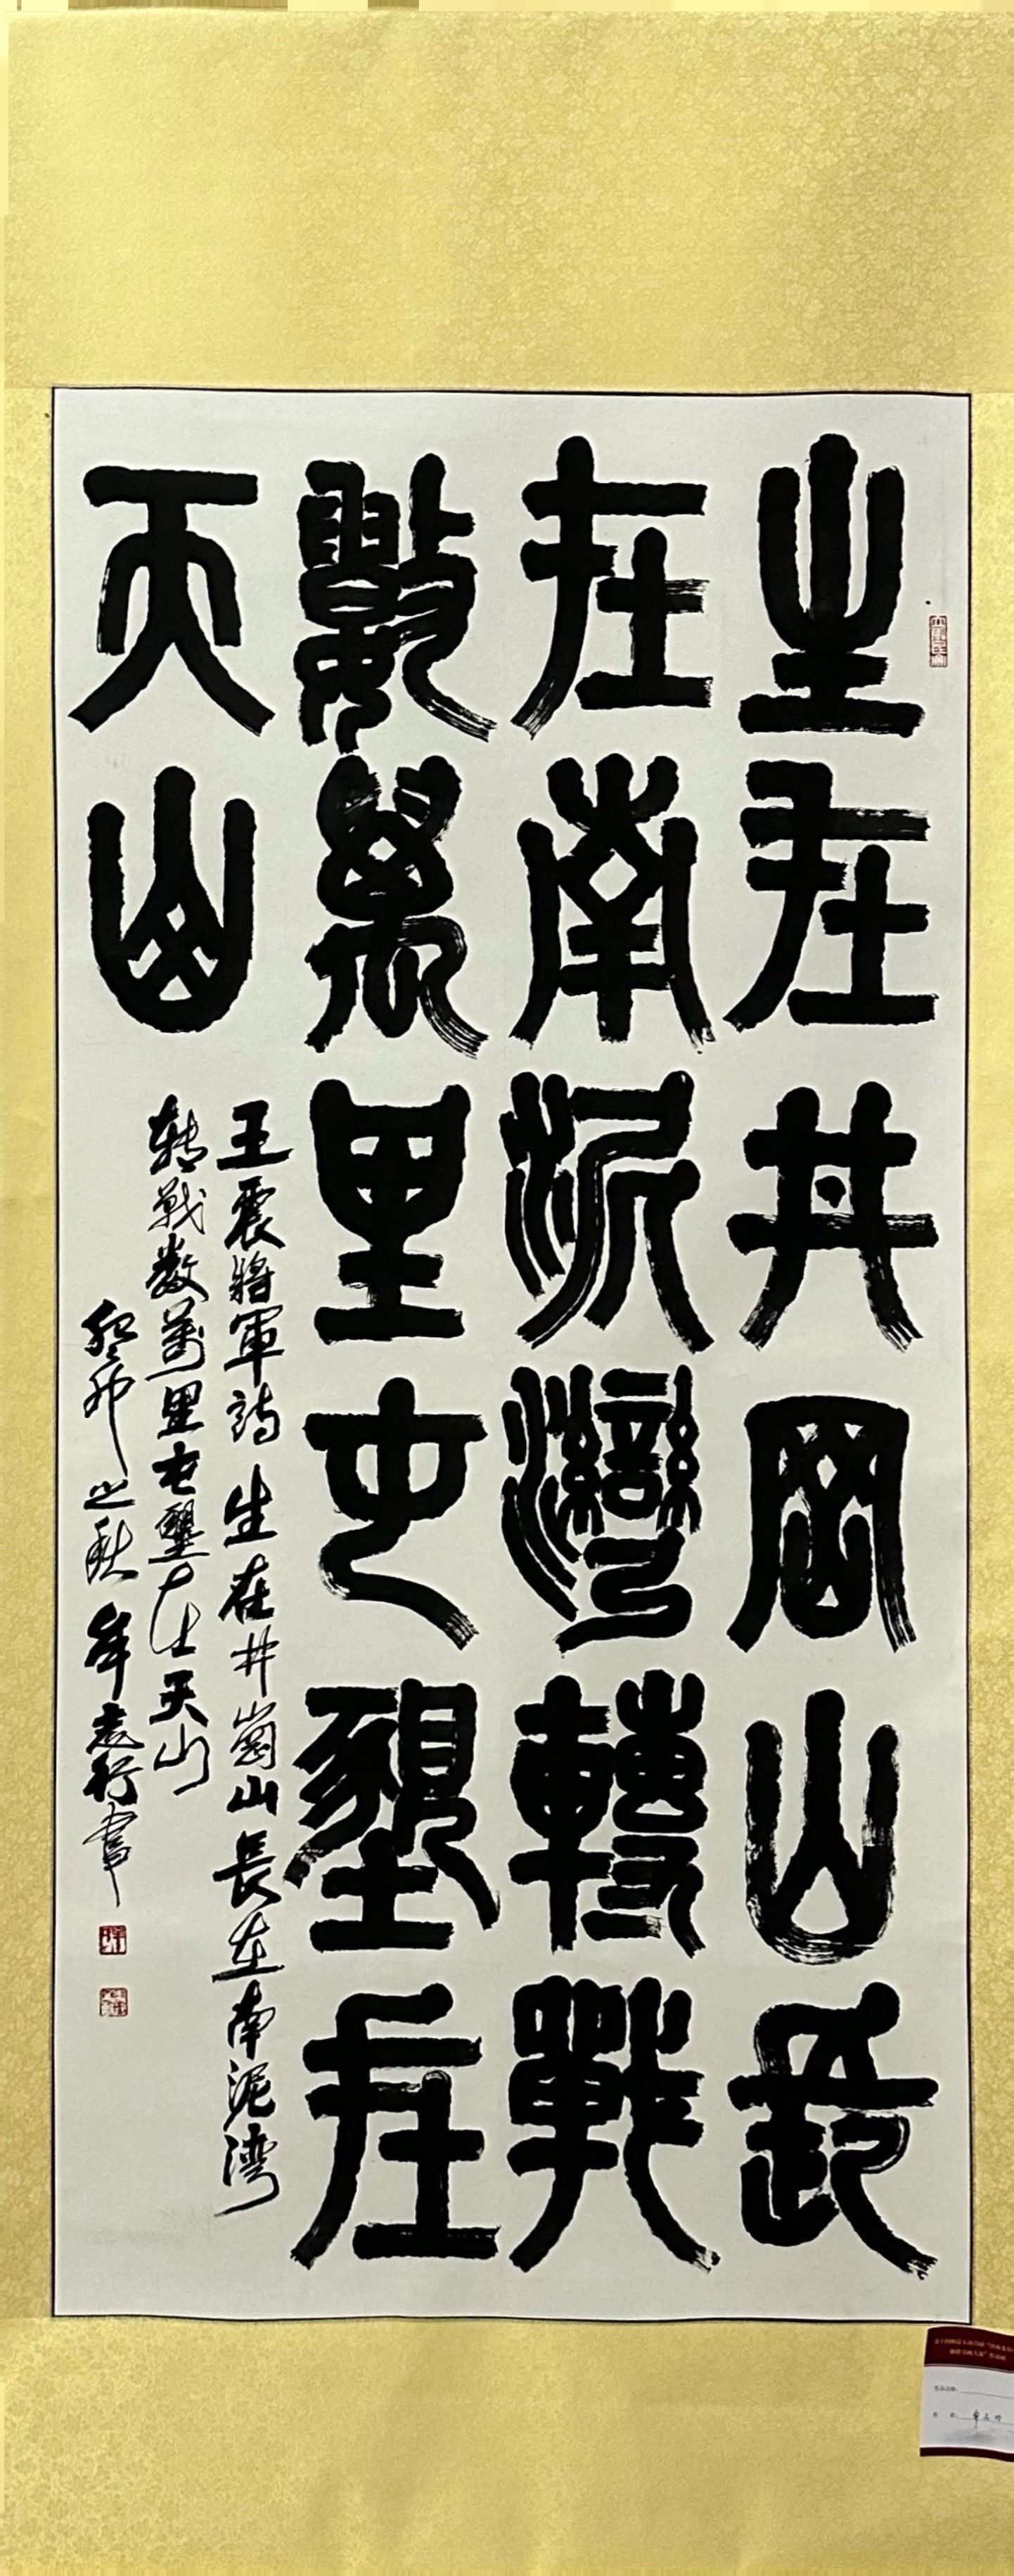 生在井岡山長
在南泥灣轉戰
數萬里屯墾在
天山
王震將軍詩 生在井崗山長在南泥湾
转戰数萬里屯墾在天山
癸卯之秋 牟志行書